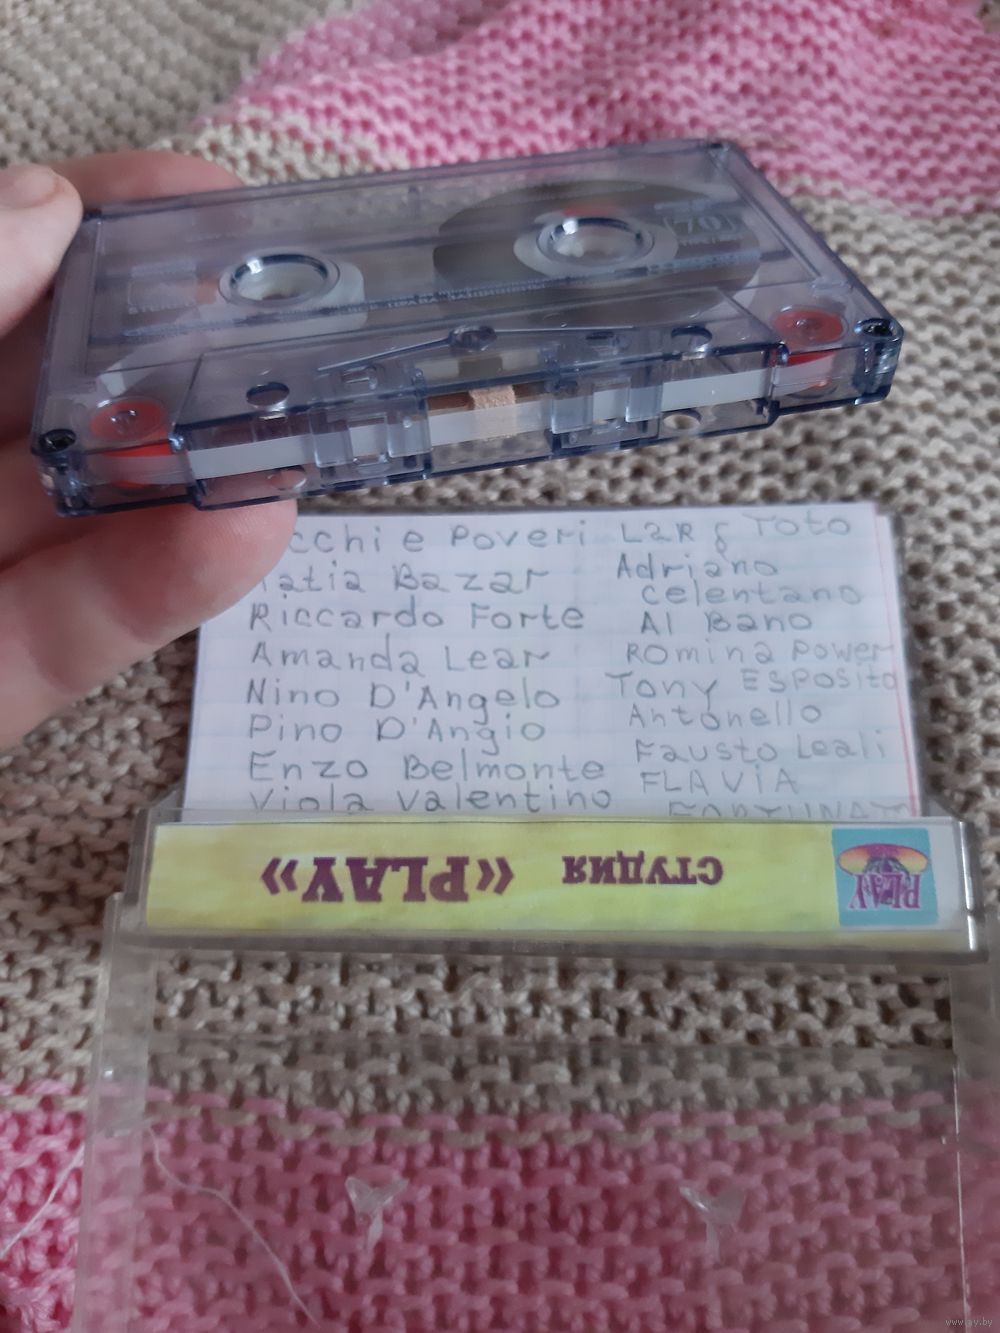 70
cchi e Poveri
atia Bazar
Riccardo Forte
Amanda Lear
Nino D'Angelo
Pino D'Angio
Enzo Belmonte
Viola Valentino
& Toto
Adriano
celentano
Al Bano
Romina Power
Tony Esposito
Antonello
Fausto Leali
FLAViA
СТУДИЯ «PLAY»
PLAY
www.ay.by